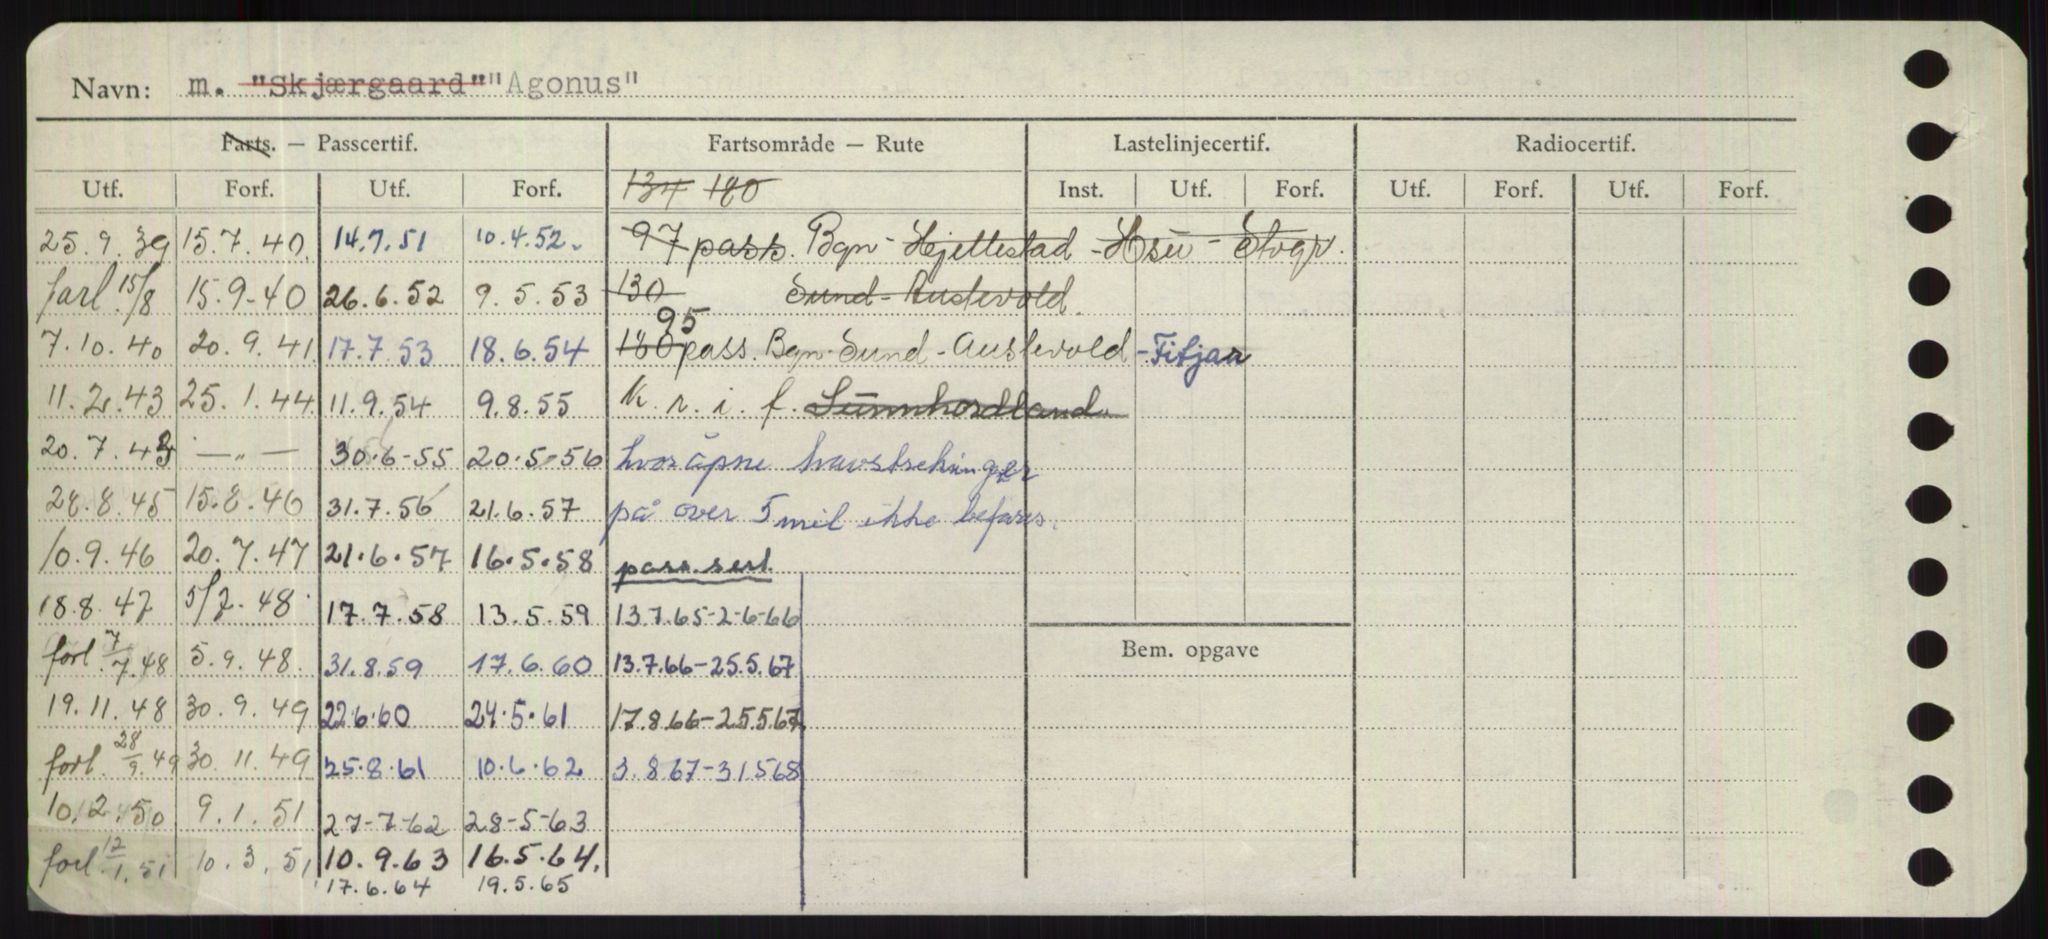 Navn: m. "Skjærgaard" "Agonus"
Farts. — Passcertif. Fartsområde — Rute Lastelinjecertif. Radiocertif.
Utf. Forf. Utf. Forf. 134 180 Inst. Utf. Forf. Utf. Forf. Utf. Forf.
25.9.39 15.7.40. 14.7.51 10.4.52. 97 pass. Bgn - Hjellestad - Hsu - Stvgr.
forl. 15/8 15.9-40 26.6.52 9.5.53 130 Sund - Austevold.
95
7.10.40 20.9.41 17.7.53 18.6.54 180 pass. Bgn - Sund - Austevold - Fitjar
11.2.43 25.1.44 11.9.54 9.8.55 K. r. i. f. Sunnhordland.
20.7.43 — „ — 30.6-55 20.5-56 hvor åpne havstrekninger
28.8.45 15.8.46 31.7.56 21.6.57 på over 5 mil ikke befares.
10.9.46 20.7.47 21.6.57 16.5.58 pass. sert.
18.8.47 5/7.48 17.7.58 13.5.59 13.7.65-2-6-66
forl. 7/7.48 5.9.48. 31.8.59 17.6.60 13.7.66-25.5.67
Bem. opgave
19.11.48 30.9.49 22.6.60 24.5.61 17.8.66-25.5.67
forl. 28/9.49 30.11.49 25.8.61 10.6.62 3.8.67-31.5.68
10.2.50 9.1.51 27-7-62 28-5-63
forl. 12/1.51 10.3.51 10.9.63 16.5.64.
17.6.64 19.5.65